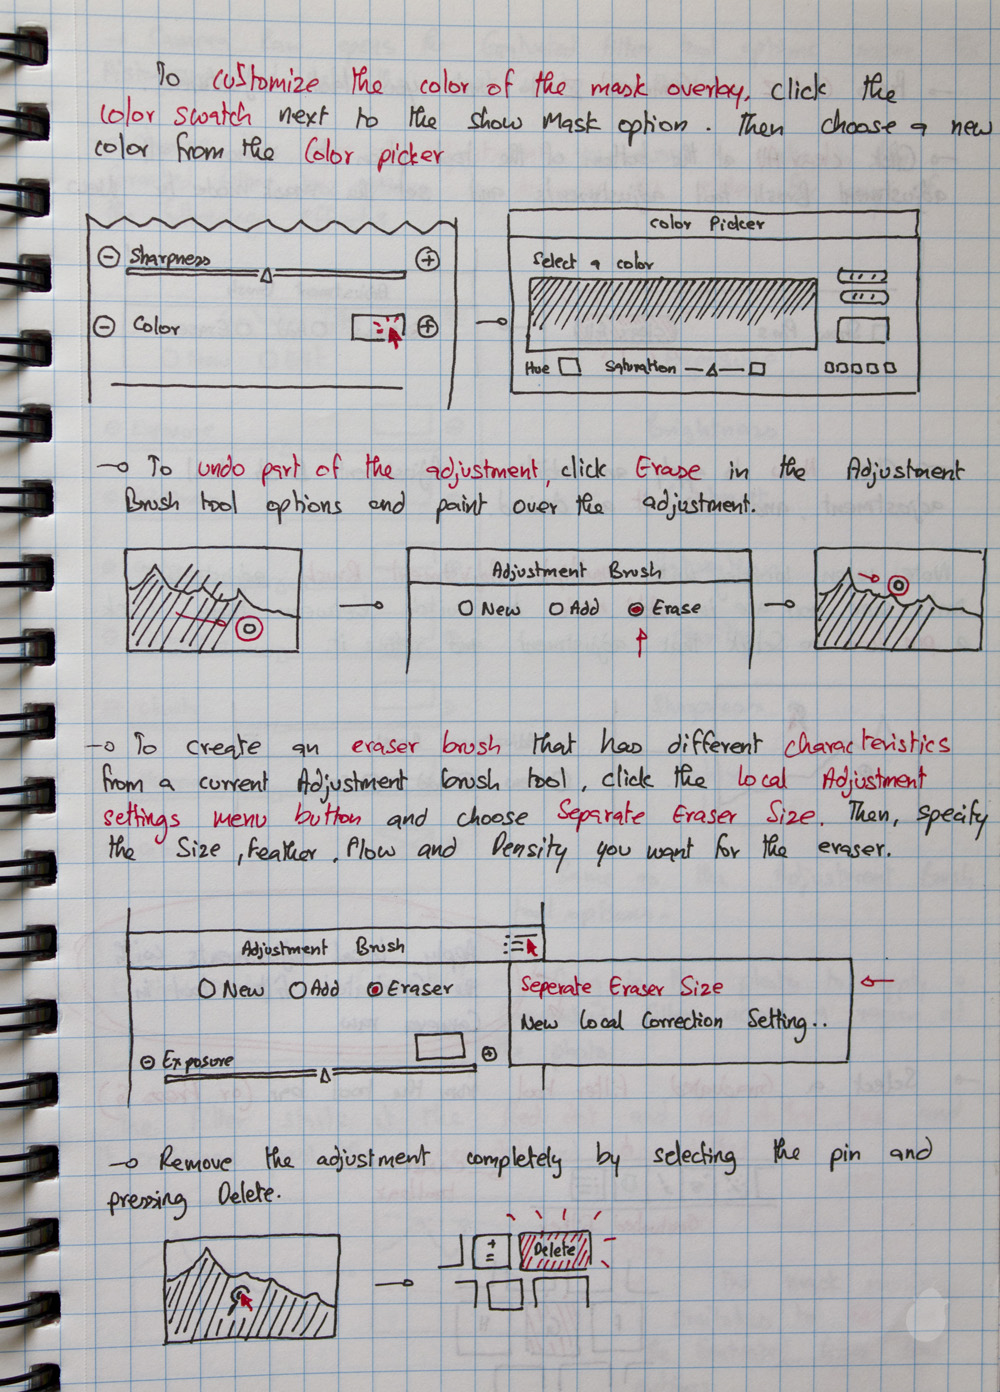 To customize the color of the mask overlay, click the
color swatch next to the show Mask option. Then choose a new
color from the Color picker
Sharpness
Color
Color Picker
Select a color
Hue Saturation
To undo part of the adjustment, click Erase in the Adjustment
Brush tool options and paint over the adjustment.
Adjustment Brush
New Add Erase
To create an eraser brush that has different characteristics
from a current Adjustment brush tool, click the Local Adjustment
settings menu button and choose Separate Eraser Size. Then, specify
the Size, Feather, Flow and Density you want for the eraser.
Adjustment Brush
New Add Eraser
Exposure
Seperate Eraser Size
New Local Correction Setting..
Remove the adjustment completely by selecting the pin and
pressing Delete.
+
=
Delete